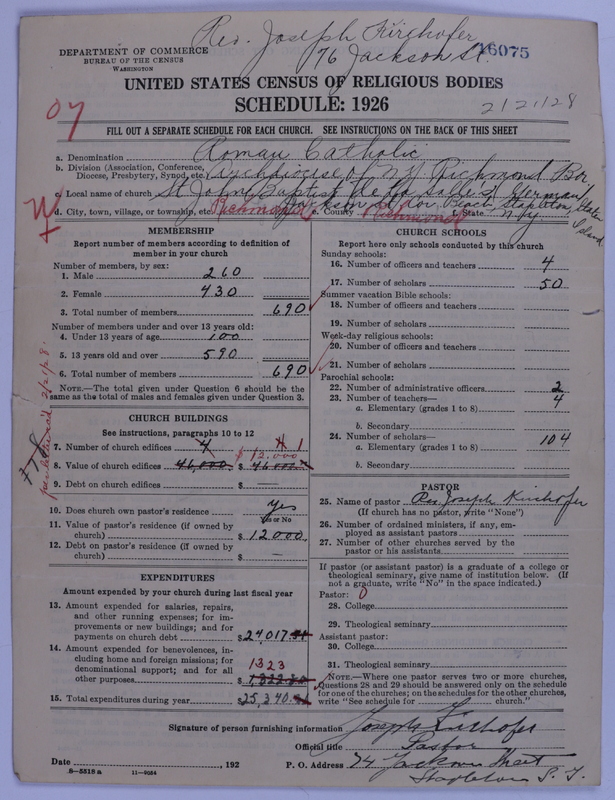 Rev. Joseph Kirchofer
76 Jackson St. 16075
DEPARTMENT OF COMMERCE
BUREAU OF THE CENSUS
WASHINGTON
UNITED STATES CENSUS OF RELIGIOUS BODIES
SCHEDULE: 1926
2/21/28
FILL OUT A SEPARATE SCHEDULE FOR EACH CHURCH. SEE INSTRUCTIONS ON THE BACK OF THIS SHEET
a. Denomination Roman Catholic
b. Division (Association, Conference, Diocese, Presbytery, Synod, etc.) Archdiocese of N.Y. Richmond Bor
c. Local name of church St. John Baptist de la Salle German
d. City, town, village, or township, etc. Richmond Jackson St. cor. Beach, Stapleton, Staten Island e. County Richmond f. State N.y
MEMBERSHIP
Report number of members according to definition of member in your church
Number of members, by sex:
1. Male 260
2. Female 430
3. Total number of members 690
Number of members under and over 13 years old:
4. Under 13 years of age 100
5. 13 years old and over 590
6. Total number of members 690
NOTE.—The total given under Question 6 should be the same as the total of males and females given under Question 3.
CHURCH BUILDINGS
See instructions, paragraphs 10 to 12
7. Number of church edifices 4 1
$ 12.000
8. Value of church edifices 46,000 $ 46.000
9. Debt on church edifices $ —
10. Does church own pastor's residence yes
Yes or No
11. Value of pastor's residence (if owned by church) $ 12000
12. Debt on pastor's residence (if owned by church) $ —
EXPENDITURES
Amount expended by your church during last fiscal year
13. Amount expended for salaries, repairs, and other running expenses; for improvements or new buildings; and for payments on church debt $24,017.
14. Amount expended for benevolences, including home and foreign missions; for denominational support; and for all other purposes $ 1323
15. Total expenditures during year $25,340.
CHURCH SCHOOLS
Report here only schools conducted by this church
Sunday schools:
16. Number of officers and teachers 4
17. Number of scholars 50
Summer vacation Bible schools:
18. Number of officers and teachers
19. Number of scholars
Week-day religious schools:
20. Number of officers and teachers
21. Number of scholars
Parochial schools:
22. Number of administrative officers 2
23. Number of teachers—
a. Elementary (grades 1 to 8) 4
b. Secondary
24. Number of scholars—
a. Elementary (grades 1 to 8) 104
b. Secondary
PASTOR
25. Name of pastor Rev. Joseph Kirchofer
(If church has no pastor, write "None")
26. Number of ordained ministers, if any, employed as assistant pastors
27. Number of other churches served by the pastor or his assistants
If pastor (or assistant pastor) is a graduate of a college or theological seminary, give name of institution below. (If not a graduate, write "No" in the space indicated.)
Pastor: 0
28. College
29. Theological seminary
Assistant pastor:
30. College
31. Theological seminary
NOTE.—Where one pastor serves two or more churches, Questions 28 and 29 should be answered only on the schedule for one of the churches; on the schedules for the other churches, write "See schedule for church."
Signature of person furnishing information Joseph Kirchofer
Official title Pastor
Date , 192 P. O. Address 74 Jackson Street
Stapleton S. I.
8-5518 a 11-9054